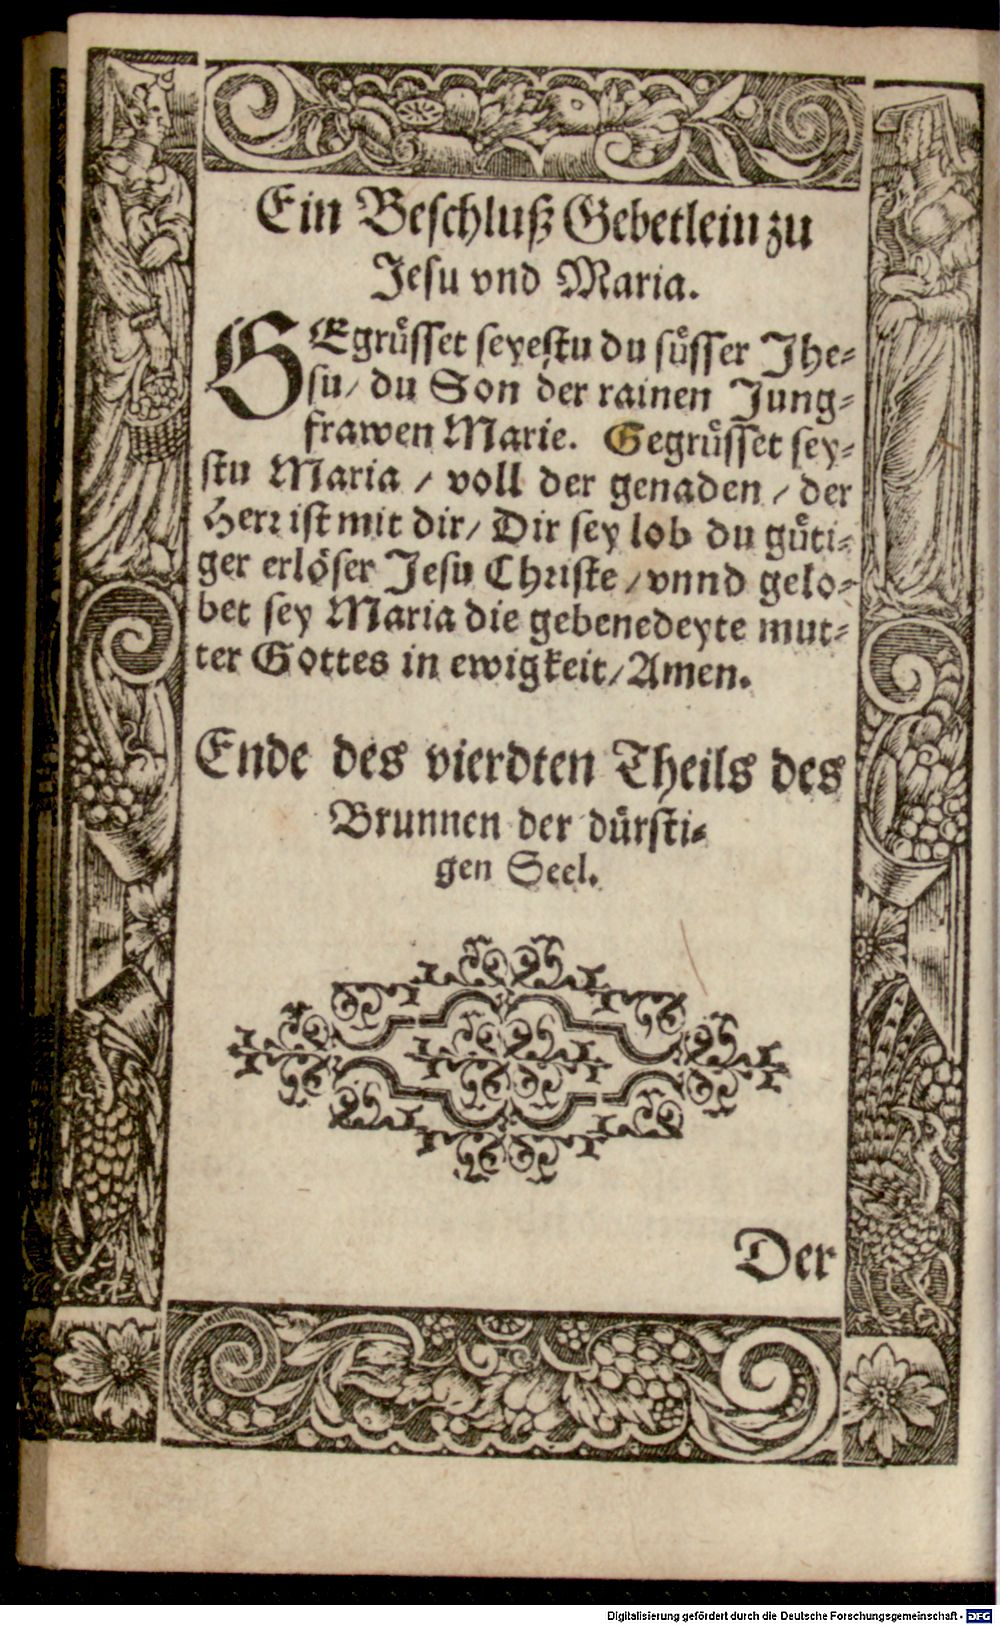 Ein Beschluß Gebetlein zu
Jesu vnd Maria.
GEgrüsset seyestu du süsser Jhe=
su/ du Son der rainen Jung=
frawen Marie. Gegrüsset sey=
stu Maria / voll der genaden / der
Herr ist mit dir/ Dir sey lob du güti=
ger erlöser Jesu Christe / vnnd gelo=
bet sey Maria die gebenedeyte mut=
ter Gottes in ewigkeit/ Amen.
Ende des vierdten Theils des
Brunnen der dürsti=
gen Seel.
Der
Digitalisierung gefördert durch die Deutsche Forschungsgemeinschaft - DFG